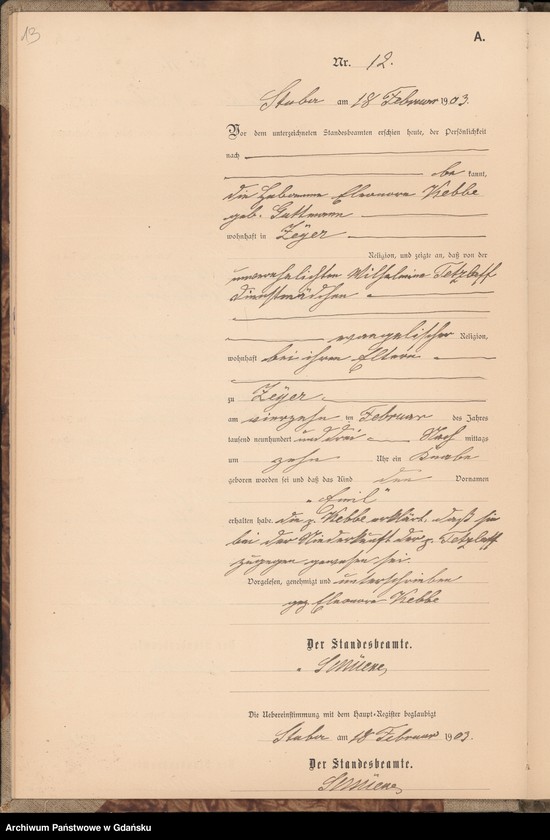 13
A.
Nr. 12.
Stuba am 18 Februar 1903.
Vor dem unterzeichneten Standesbeamten erschien heute, der Persönlichkeit
nach
be kannt,
die Hebamme Eleonore Kebbe
geb. Guttmann
wohnhaft in Zeyer
Religion, und zeigte an, daß von der
unverehelichten Wilhelmine Tetzlaff
Dienstmädchen
evangelischer Religion,
wohnhaft bei ihren Eltern
zu Zeyer
am vierzehn ten Februar des Jahres
tausend neunhundert und drei Nach mittags
um zehn Uhr ein Knabe
geboren worden sei und daß das Kind den Vornamen
„Emil“
erhalten habe. die p. Kebbe erklärt, daß sie
bei der Niederkunft der p. Tetzlaff
zugegen gewesen sei.
Vorgelesen, genehmigt und unterschrieben
gez Eleonore Kebbe
Der Standesbeamte.
Die Uebereinstimmung mit dem Haupt-Register beglaubigt
Stuba am 18 Februar 1903.
Der Standesbeamte.
Archiwum Państwowe w Gdańsku